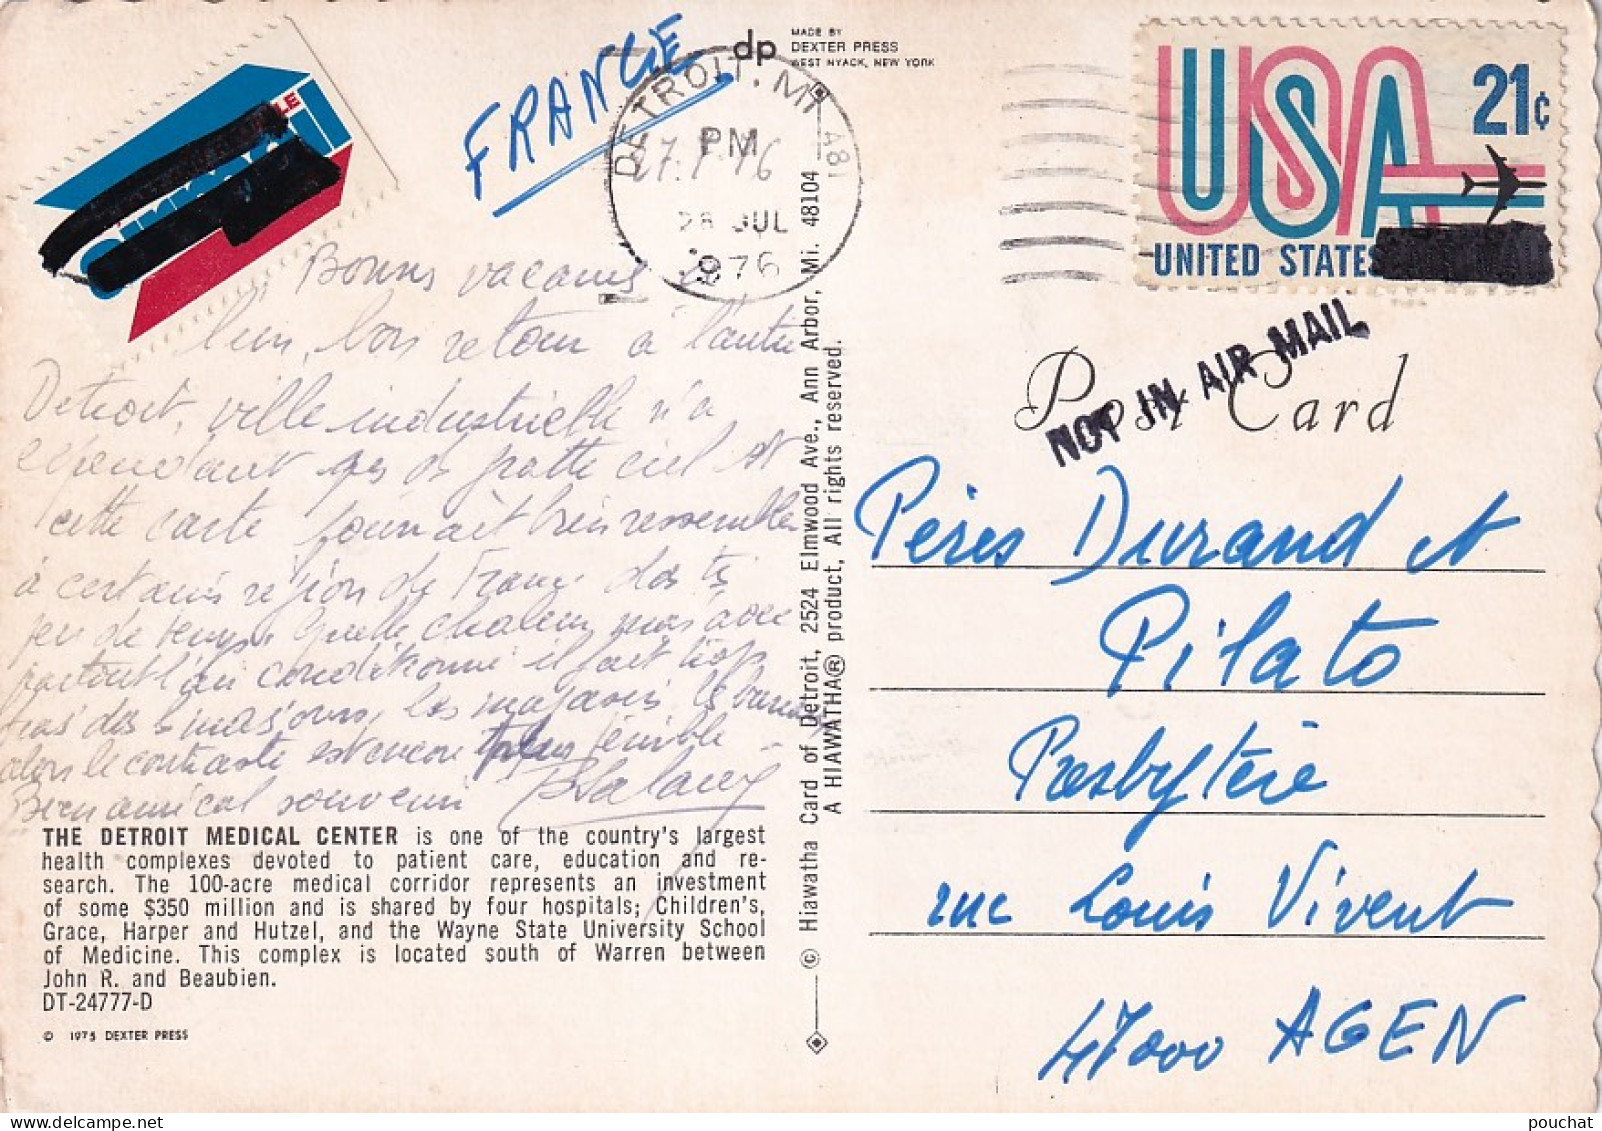 FRANCE
dp
MADE BY
DEXTER PRESS
WEST NYACK, NEW YORK
DETROIT, MI 481
PM
28 JUL
1976
27.7.76
USA
21¢
UNITED STATES
NOT IN AIR MAIL
Post Card
Bonnes vacances
bon retour à l'autre
Detroit, ville industrielle n'a
cependant pas de gratte ciel et
cette carte pourrait bien ressembler
à certaines région de France
peu de temps. Quelle chaleur, mais avec
partout l'air conditionné il fait trop
les magasins, les bureaux
alors le contraste est encore plus pénible -
Bien amical souvenir
THE DETROIT MEDICAL CENTER is one of the country's largest
health complexes devoted to patient care, education and re-
search. The 100-acre medical corridor represents an investment
of some $350 million and is shared by four hospitals; Children's,
Grace, Harper and Hutzel, and the Wayne State University School
of Medicine. This complex is located south of Warren between
John R. and Beaubien.
DT-24777-D
© 1975 DEXTER PRESS
© Hiawatha Card of Detroit, 2524 Elmwood Ave., Ann Arbor, Mi. 48104
A HIAWATHA® product, All rights reserved.
Pères Durand et
Pilato
Presbytère
rue Louis Vivent
47000 AGEN
pouchat